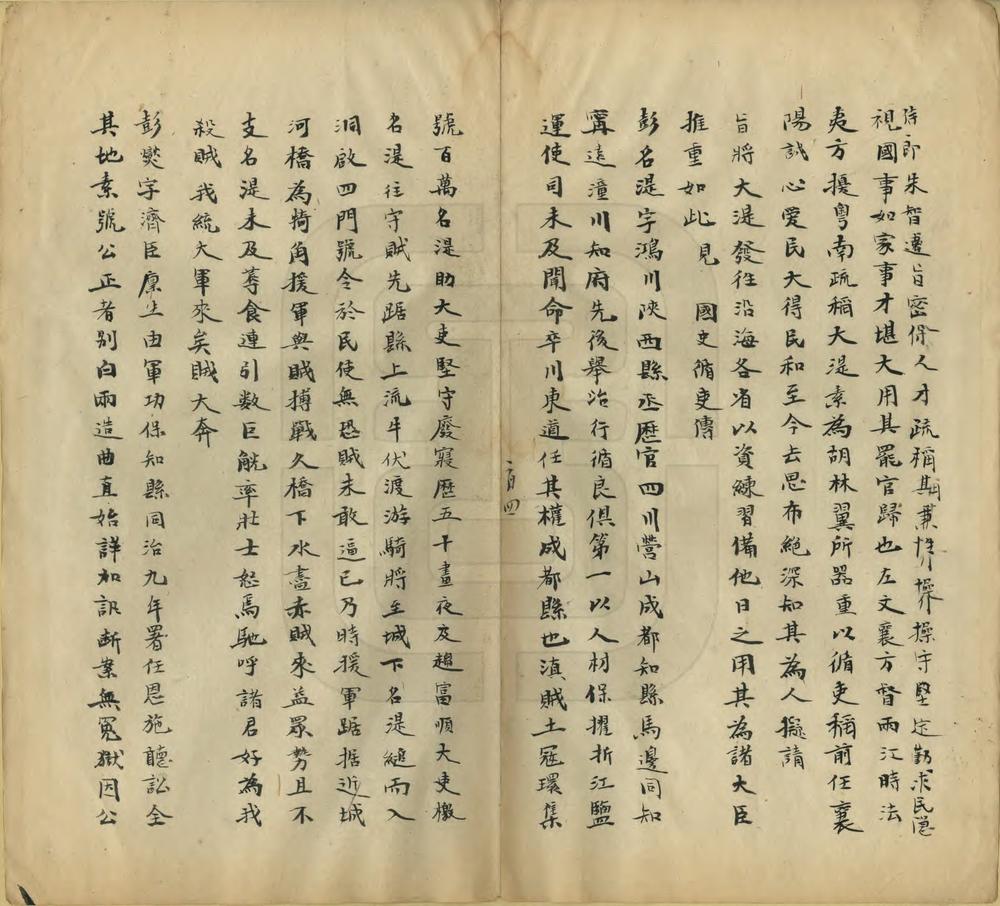 侍郎朱智遵旨密保人才疏稱其兼性操操守堅定勤求民隱
視國事如家事才堪大用其罷官歸也左文襄方督兩江時法
夷方擾粵南疏稱大湜素為胡林翼所器重以循吏稱前任襄
陽誠心愛民大得民和至今去思布絕深知其為人擬請
旨將大湜發往沿海各省以資練習備他日之用其為諸大臣
推重如此見　國史循吏傳
彭名湜字鴻川陝西縣丞歷官四川營山成都知縣馬邊同知
寗遠潼川知府先後舉治行循良俱第一以人材保擢折江鹽
運使司未及聞命卒川東道任其權成都縣也滇賊土冦環集
二百四
號百萬名湜助大吏堅守廢寢歷五十晝夜及趨富順大吏檄
名湜往守賊先踞縣上流牛伏渡游騎將至城下名湜縋而入
洞啟四門號令於民使無恐賊未敢逼已乃時援軍踞据近城
河橋為掎角援軍與賊搏戰久橋下水盡赤賊來益眾勢且不
支名湜未及蓐食連引數巨觥率壯士怒馬馳呼諸君好為我
殺賊我統大軍來矣賊大奔
彭爕字濟臣廩生由軍功保知縣同治九年署任恩施聽訟全
其地素號公正者別白兩造曲直始詳加訊斷案無冤獄因公